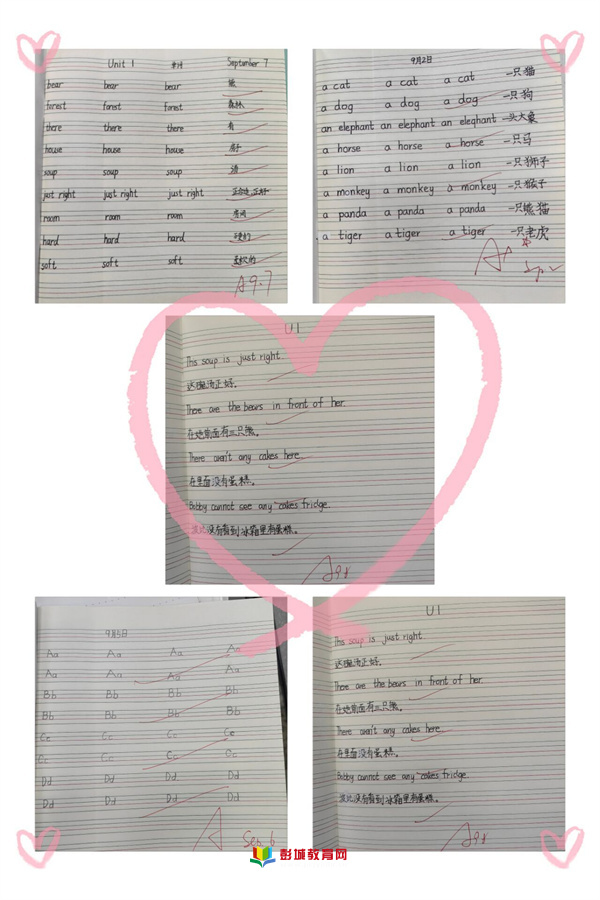 Unit 1 September 7
bear bear bear 熊
forest forest forest 森林
there there there 有
house house house 房子
soup soup soup 汤
just right just right just right
room room room 房间
hard hard hard
soft soft soft 柔软的
A 9.7
9月2日
a cat a cat a cat 一只猫
a dog a dog a dog 一只狗
an elephant an elephant an eleqhant 一头大象
a horse a horse a horse 一只马
a lion a lion a lion 一只狮子
a monkey a monkey a monkey 一只猴子
a panda a panda a panda 一只熊猫
a tiger a tiger a tiger 一只老虎
U1
This soup is just right.
这碗汤正好。
There are the bears in front of her.
在她前面有三只熊。
There aren't any cakes here
在里面没有蛋糕。
Bobby cannot see any cakes fridge.
波比没有看到冰箱里有蛋糕。
A 9.8
9月5日
Aa Aa Aa Aa
Aa Aa Aa Aa
Bb Bb Bb Bb
Bb Bb Bb Bb
Cc Cc Cc Cc
Cc Cc Cc Cc
Dd Dd Dd Dd
Dd Dd Dd Dd
A Sep. 6
U1
This soup is just right.
这碗汤正好。
There are the bears in front of her.
在她前面有三只熊。
There aren't any cakes here
在里面没有蛋糕。
Bobby cannot see any cakes fridge.
波比没有看到冰箱里有蛋糕。
A 9.8
彭城教育网